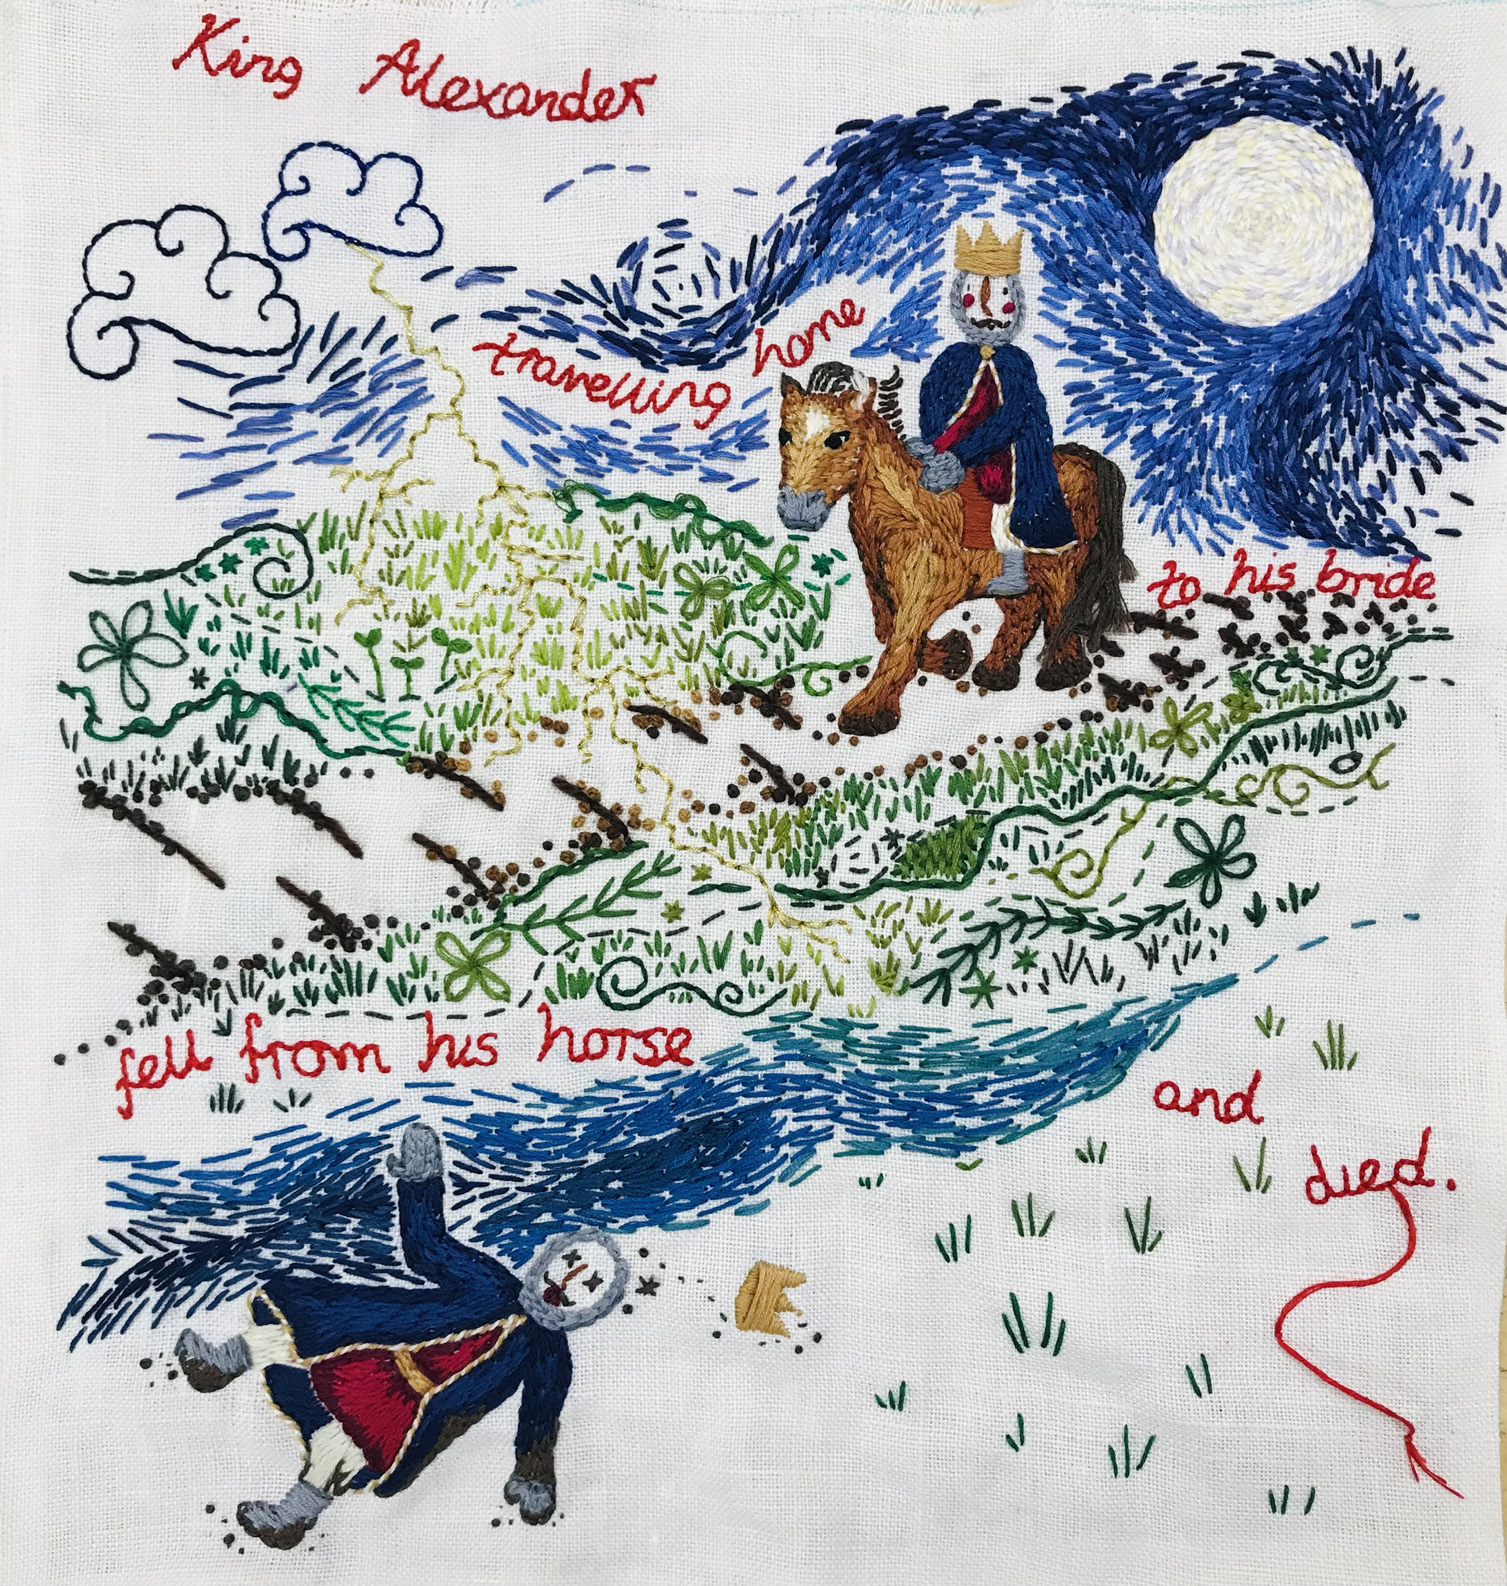 King Alexander
travelling home
to his bride
fell from his horse
and
died.